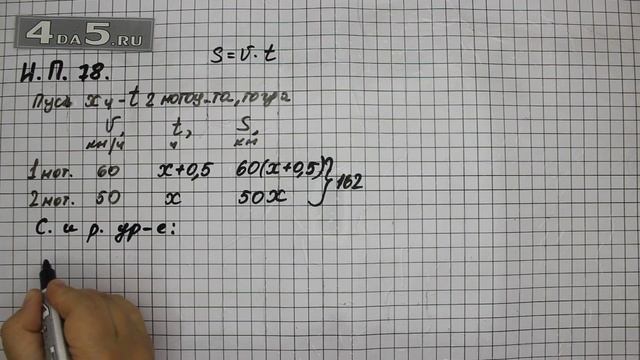 4DA5.RU
S = v · t
Н. П. 78.
Пусть x ч – t 2 мотоц-та, тогда
v, t, S,
км/ч ч км
1 мот. 60 x+0,5 60(x+0,5)
162
2 мот. 50 x 50x
С. и р. ур-е: